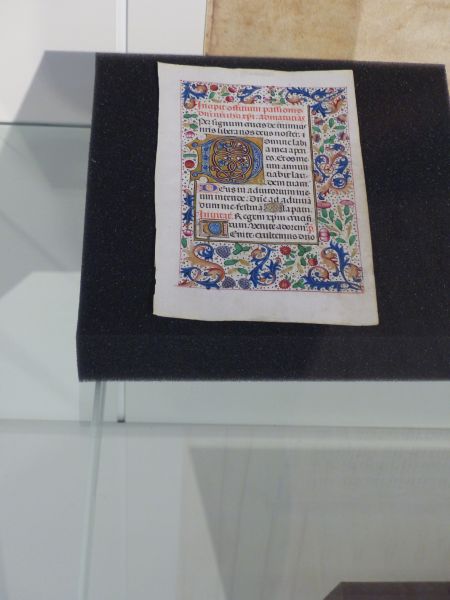 Incipit officium passionis
Dñi nr̃i ihu xp̃i. Ad matutinas
Per signum crucis de inimicis
nr̃is libera nos deus noster. i
Domine labi
a mea apes
ries. Et os me
um annun
tiabit lau
dem tuam.
Deus in adiutorium me
um intende. Dñe ad adiuua
dum me festina. la patri
Regem xp̃m crucifi
xum. Venite adorem9. p̃
Uenite exultemus dño